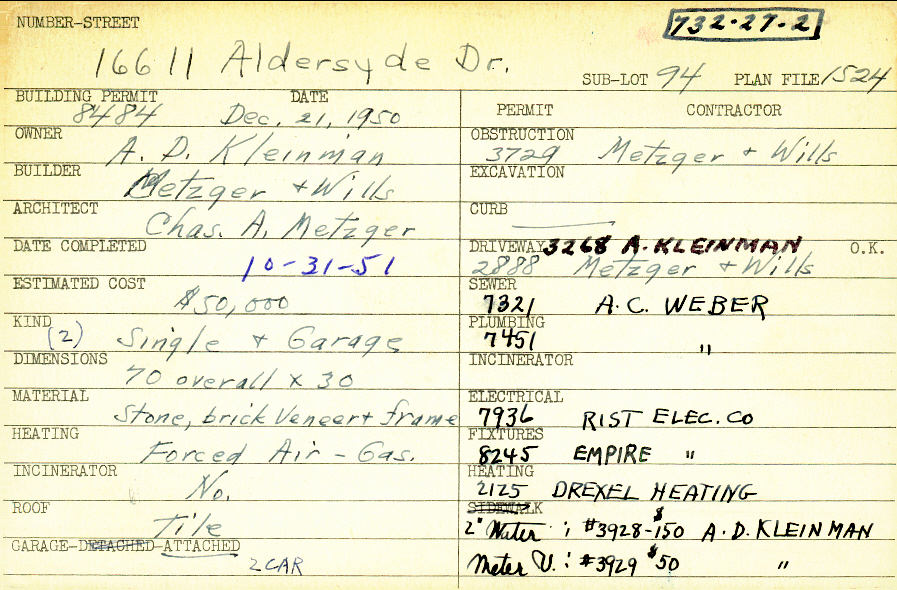 NUMBER-STREET
732-27-2
16611 Aldersyde Dr.
SUB-LOT 94 PLAN FILE 1524
BUILDING PERMIT DATE
8484 Dec. 21, 1950
OWNER
A. D. Kleinman
BUILDER
Metzger + Wills
ARCHITECT
Chas. A. Metzger
DATE COMPLETED
10-31-51
ESTIMATED COST
$50,000
KIND
(2) Single + Garage
DIMENSIONS
70 overall x 30
MATERIAL
Stone, brick Veneer + frame
HEATING
Forced Air - Gas.
INCINERATOR
No.
ROOF
Tile
GARAGE-DETACHED-ATTACHED
2 CAR
PERMIT CONTRACTOR
OBSTRUCTION
3729 Metzger + Wills
EXCAVATION
CURB
DRIVEWAY 3268 A. KLEINMAN O.K.
2888 Metzger + Wills
SEWER
7321 A.C. WEBER
PLUMBING
7451 "
INCINERATOR
ELECTRICAL
7936 RIST ELEC. CO
FIXTURES
8245 EMPIRE "
HEATING
2125 DREXEL HEATING
SIDEWALK
2" Water : #3928-$150 A.D. KLEINMAN
Meter V. : #3929 $50 "